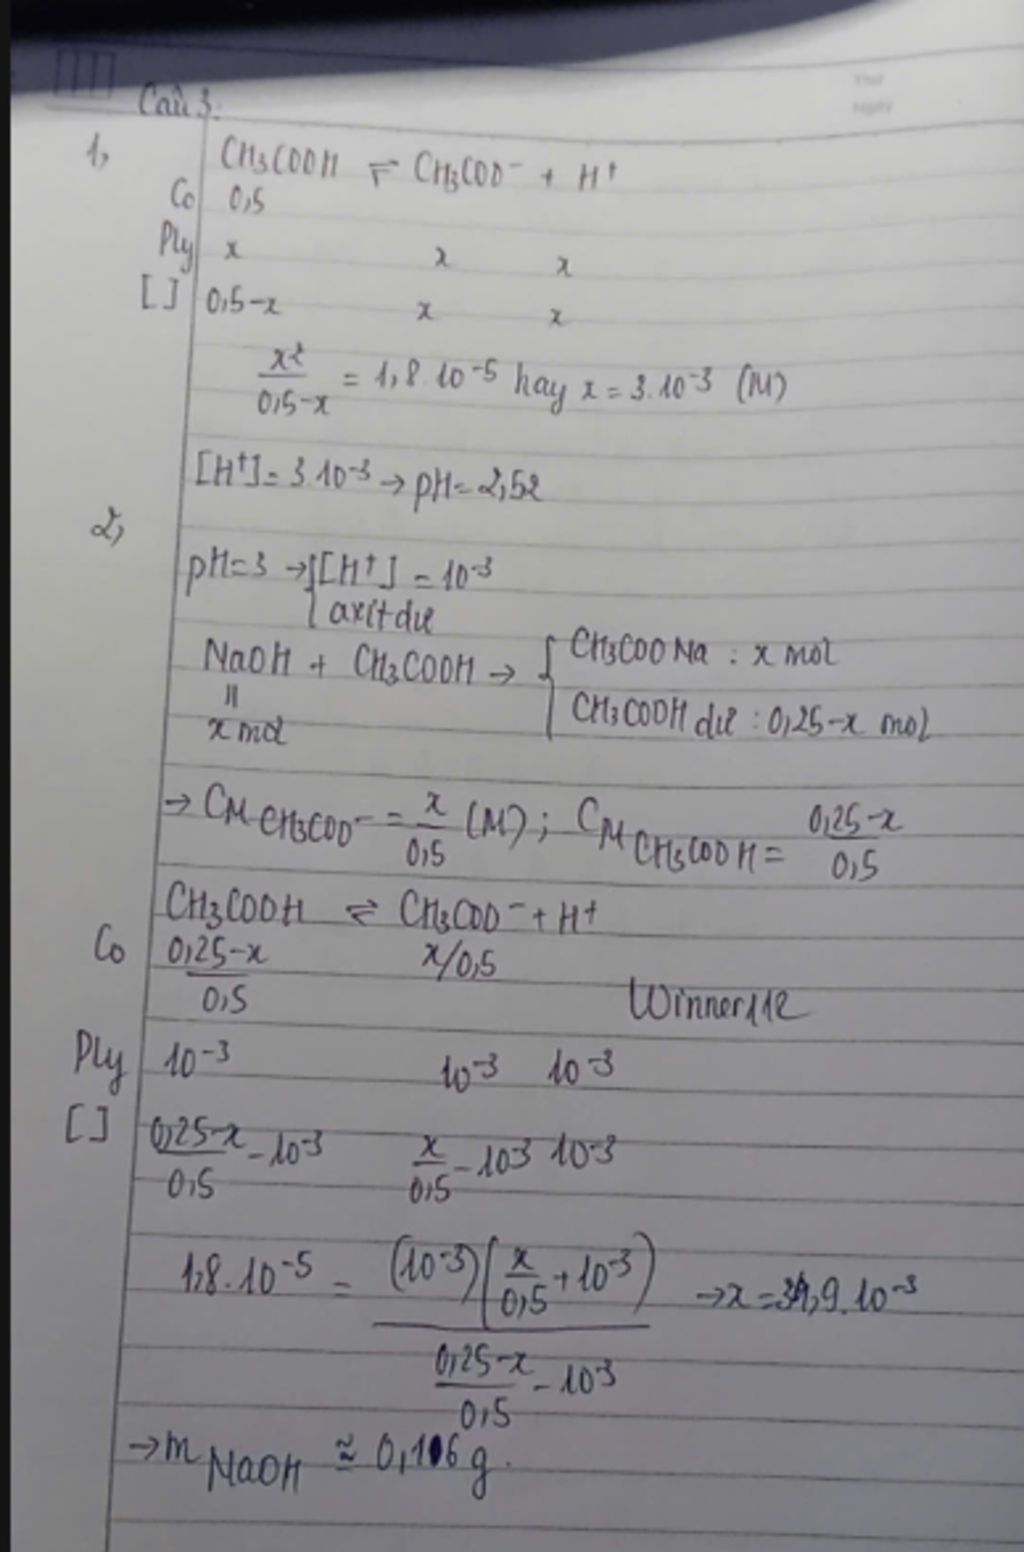 Câu 3:
1, CH3COOH ⇌ CH3COO- + H+
Co 0,5
Ply x x x
[ ] 0,5-x x x
x²/(0,5-x) = 1,8.10-5 hay x = 3.10-3 (M)
[H+] = 3.10-3 → pH = 2,52
2,
pH=3 → { [H+] = 10-3
axit dư
NaOH + CH3COOH → { CH3COONa : x mol
CH3COOH dư : 0,25-x mol
x mol
→ CM CH3COO- = x/0,5 (M) ; CM CH3COOH = (0,25-x)/0,5
CH3COOH ⇌ CH3COO- + H+
Co (0,25-x)/0,5 x/0,5
Winner112
Ply 10-3 10-3 10-3
[ ] (0,25-x)/0,5 - 10-3 x/0,5 - 10-3 10-3
1,8.10-5 = (10-3)(x/0,5 + 10-3) / ((0,25-x)/0,5 - 10-3) → x = 3,9.10-3
→ m NaOH ≈ 0,1 6 g.